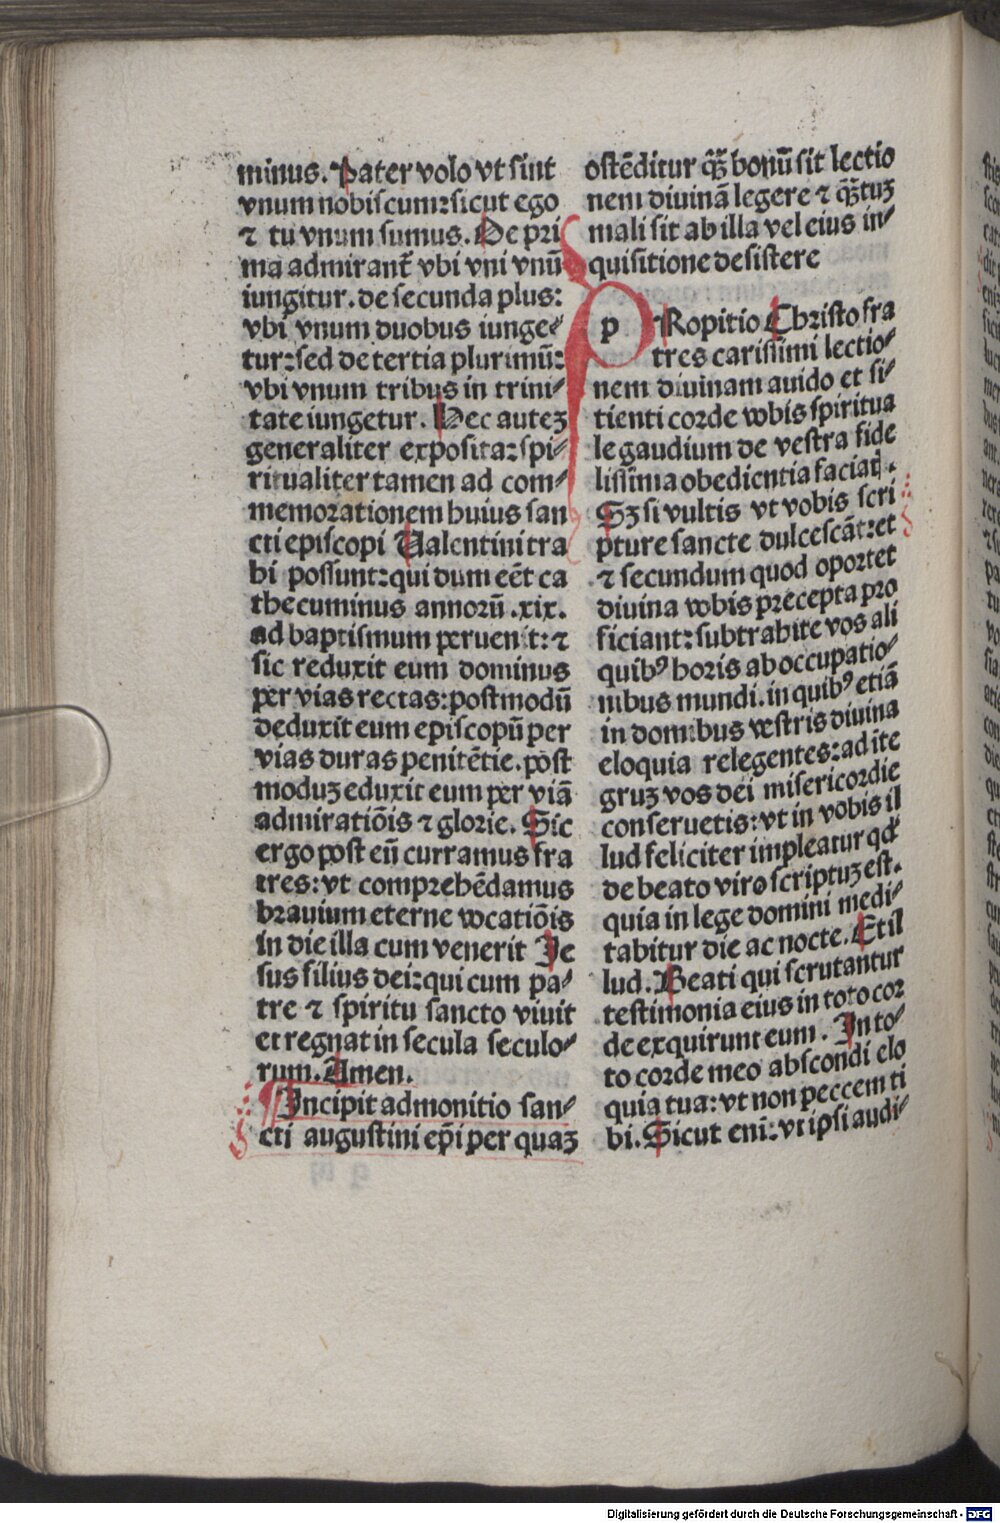 minus. Pater volo vt sint
vnum nobiscum: sicut ego
⁊ tu vnum sumus. De pri
ma admirant᷑ vbi vni vnū
iungitur. de secunda plus:
vbi vnum duobus iunge⸗
tur: sed de tertia plurimū:
vbi vnum tribus in trini⸗
tate iungetur. Hec auteꝫ
generaliter exposita: spi⸗
ritualiter tamen ad com⸗
memorationem huius san
cti episcopi Ualentini tra
hi possunt: qui dum eēt ca
thecuminus annorū .xix.
ad baptismum peruenit: ⁊
sic reduxit eum dominus
per vias rectas: postmodū
deduxit eum episcopū per
vias duras penitētie. post
moduꝫ eduxit eum per viā
admiratiōis ⁊ glorie. Sic
ergo post eū curramus fra
tres: vt comprehēdamus
brauium eterne vocatiōis
in die illa cum venerit Je
sus filius dei: qui cum pa⸗
tre ⁊ spiritu sancto viuit
et regnat in secula seculo⸗
rum. Amen.
Incipit admonitio san⸗
cti augustini ep̄i per quaꝫ
ostēditur q̄ꝫ bonū sit lectio
nem diuinā legere ⁊ q̄ꝫtuꝫ
mali sit ab illa vel eius in⸗
quisitione desistere
pRopitio Christo fra
tres carissimi lectio⸗
nem diuinam auido et si⸗
tienti corde vobis spiritua
le gaudium de vestra fide
lissima obedientia faciat.
Sꝫ si vultis vt vobis scri
pture sancte dulcescāt: et
⁊ secundum quod oportet
diuina vobis precepta pro
ficiant: subtrahite vos ali
quibꝰ horis ab occupatio⸗
nibus mundi. in quibꝰ etiā
in domibus vestris diuina
eloquia relegentes: ad ite
gruꝫ vos dei misericordie
conseruetis: vt in vobis il
lud feliciter impleatur qđ
de beato viro scriptuꝫ est.
quia in lege domini medi⸗
tabitur die ac nocte. Et il
lud. Beati qui scrutantur
testimonia eius in toto cor
de exquirunt eum. In to⸗
to corde meo abscondi elo
quia tua: vt non peccem ti
bi. Sicut eni: vt ipsi audi⸗
Digitalisierung gefördert durch die Deutsche Forschungsgemeinschaft - DFG